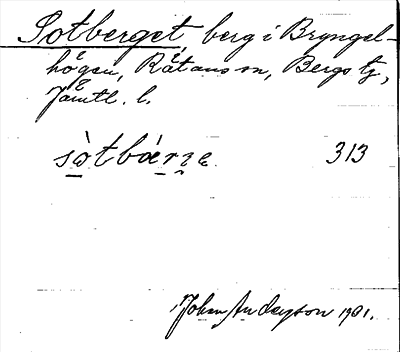 Sotberget, berg i Bryngel-
högen, Rätans sn, Bergs tg,
Jämtl. l.
sòtbárᶇe 313
Johan Anderson 1901.